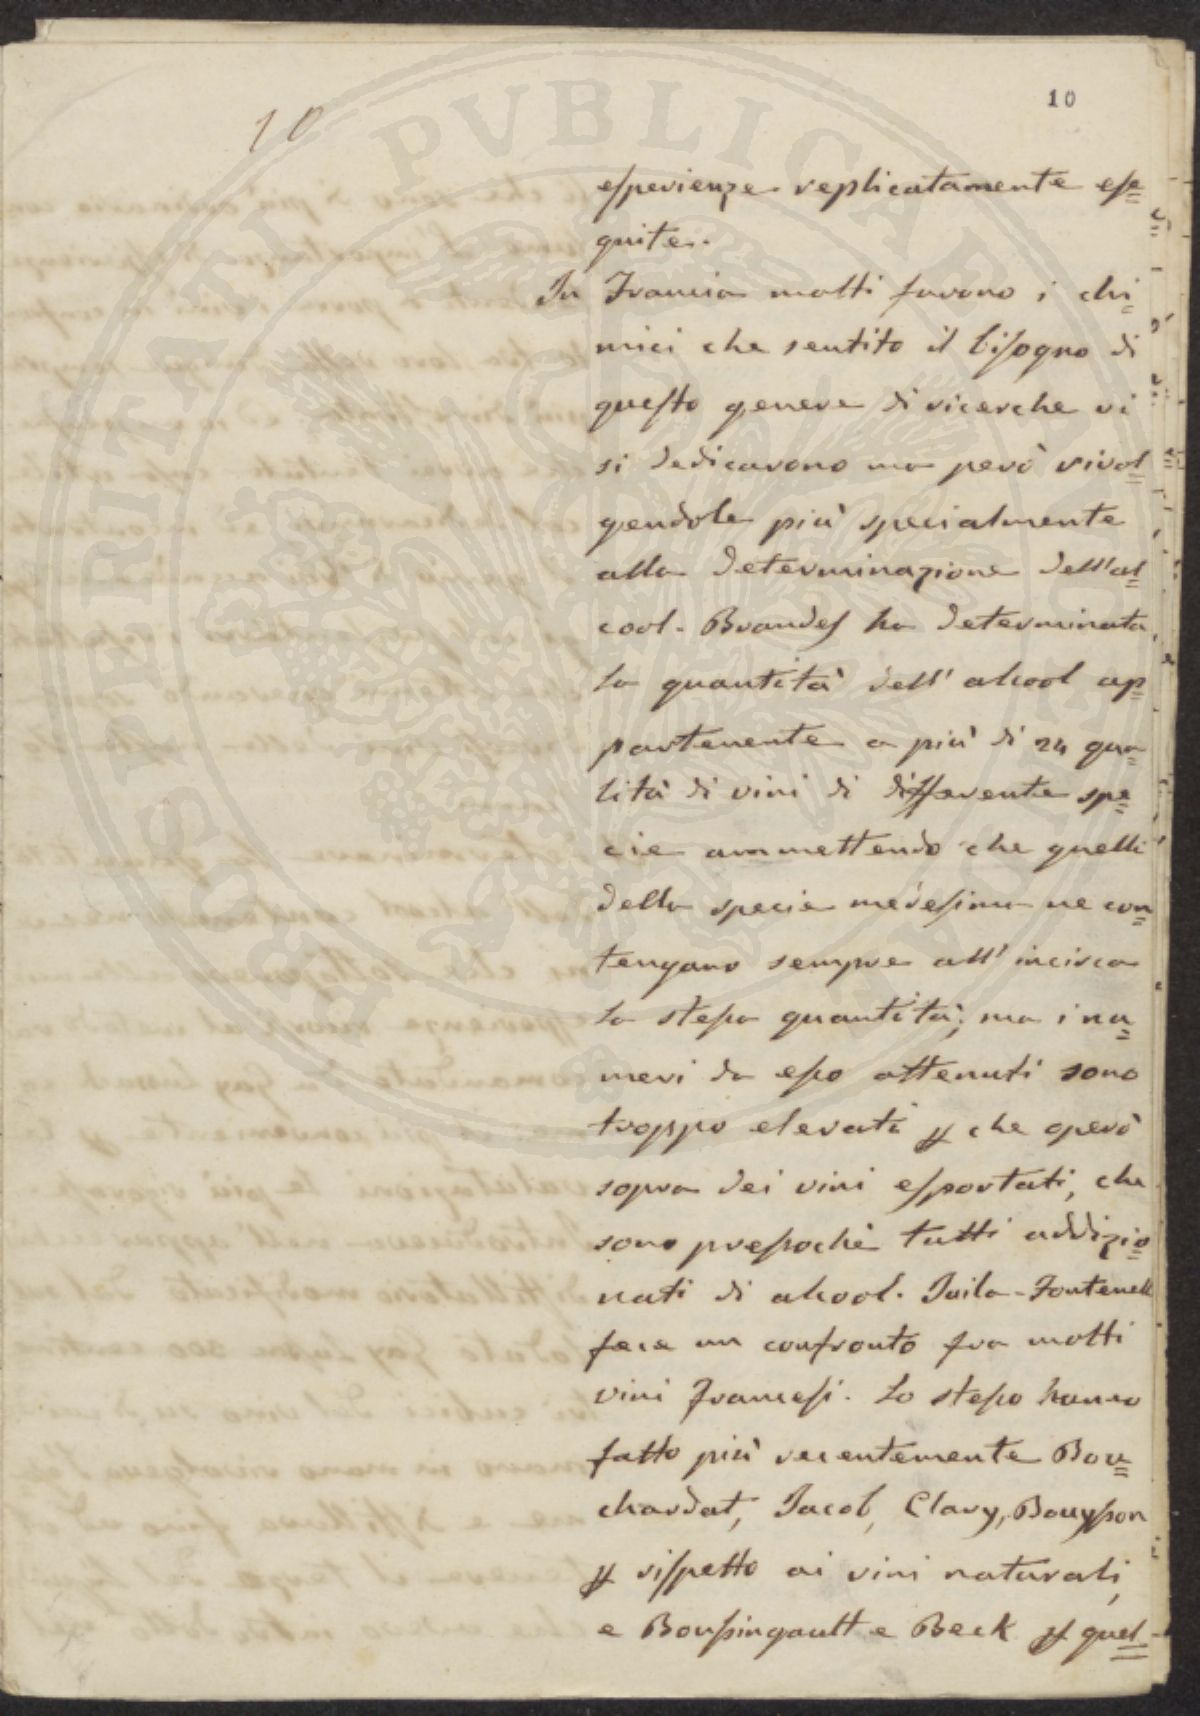 10
10
esperienze replicatamente ese=
guite.
In Francia molti furono i chi=
mici che sentito il bisogno di
questo genere di ricerche vi
si dedicarono ma però rivol=
gendole più specialmente
alla determinazione dell'al=
cool. Brandes ha determinata
la quantità dell'alcool ap=
partenente a più di 24 qua=
lità di vini di differente spe=
cie ammettendo che quelli
della specie medesima ne con=
tengano sempre all'incirca
la stessa quantità; ma i nu=
meri da esso ottenuti sono
troppo elevati che operò
sopra dei vini esportati, che
sono pressochè tutti addizio=
nati di alcool. Juila-Fontenell
fece un confronto fra molti
vini Francesi. Lo stesso hanno
fatto più recentemente Bou=
chardat, Jacob, Clary, Bouysson
rispetto ai vini naturali,
e Boussingault e Beck quel=
PROSPERITATI PVBLICAE